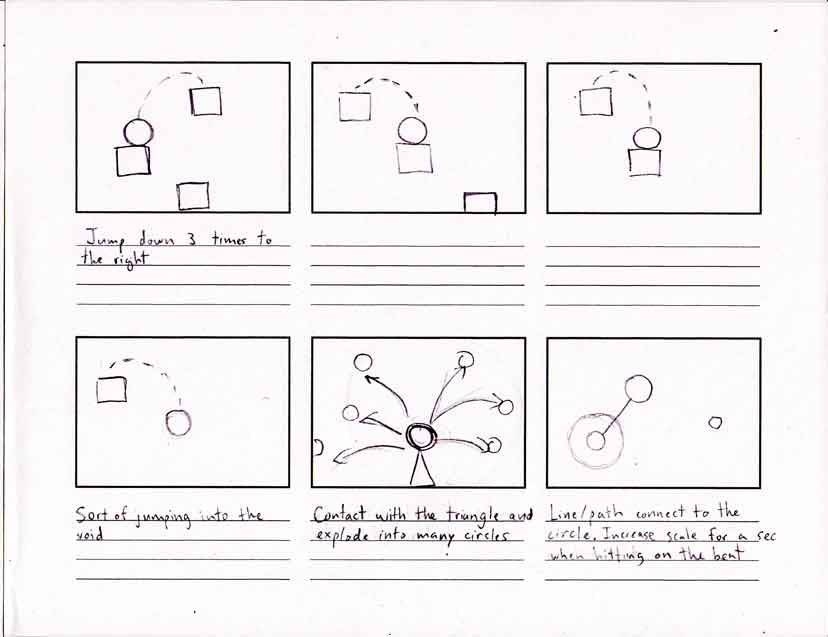 Jump down 3 times to
the right
Sort of jumping into the
void
Contact with the triangle and
explode into many circles
Line/path connect to the
circle. Increase scale for a sec
when hitting on the beat